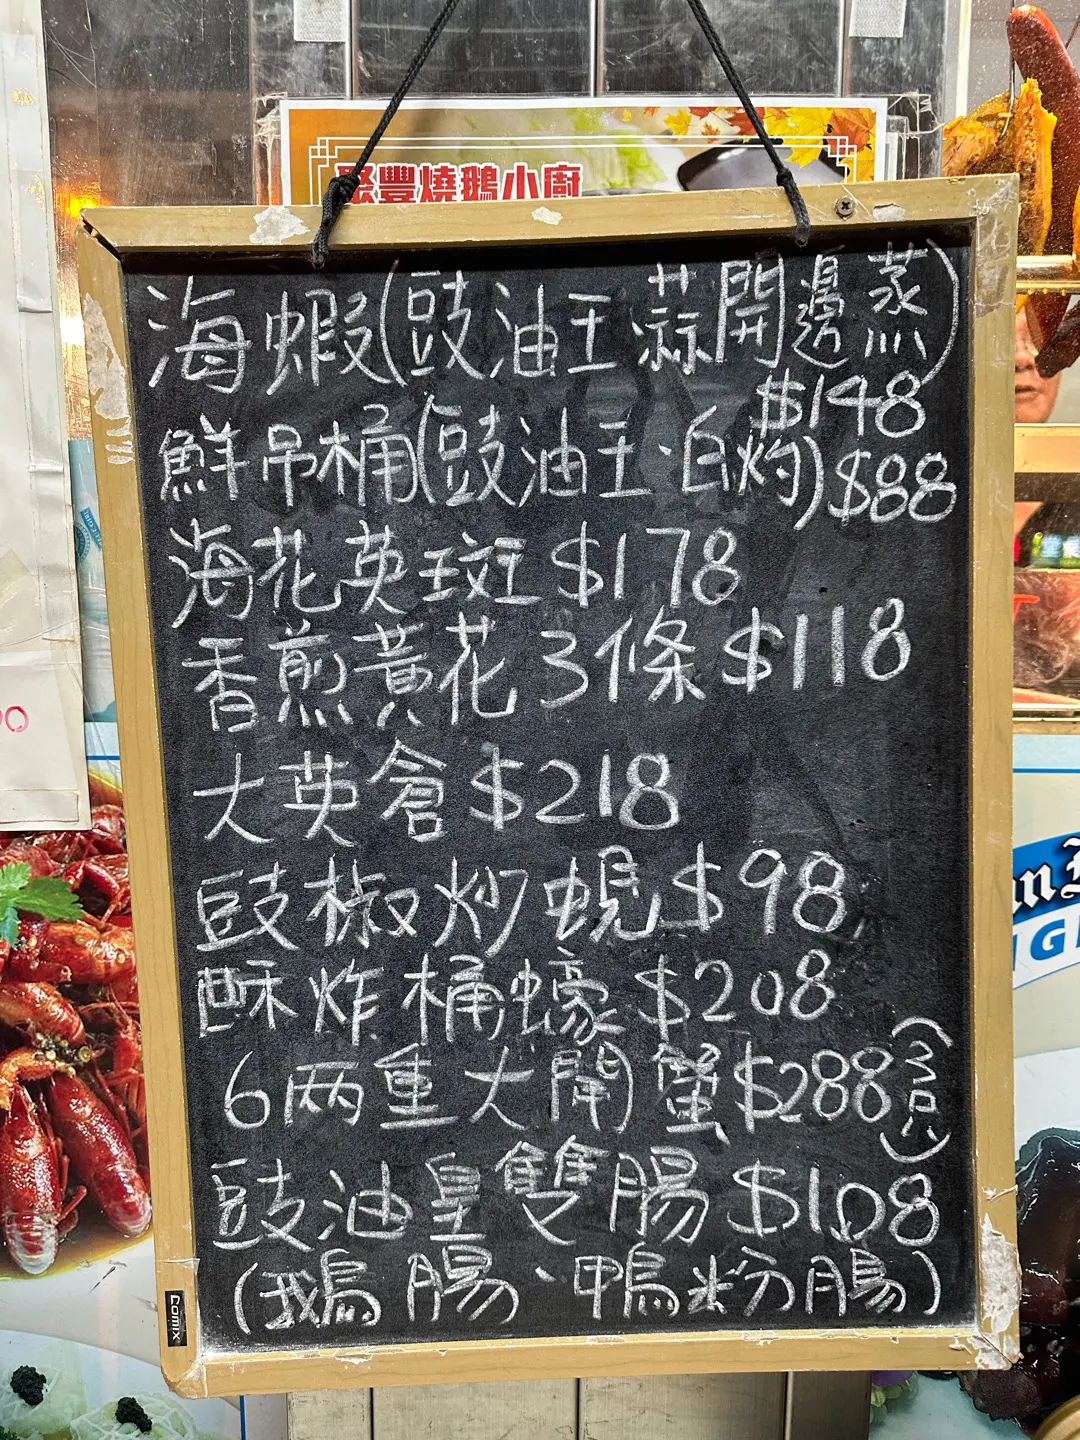 聚豐燒鵝小廚
海蝦(豉油王·蒜開邊蒸)
$148
鮮吊桶(豉油王·白灼)$88
海花英斑 $178
香煎黃花3條 $118
大英倉 $218
豉椒炒蜆 $98
酥炸桶蠔 $208
6両重大開蟹$288(3只)
豉油皇雙腸 $108
(鵝腸、鴨粉腸)
Comix